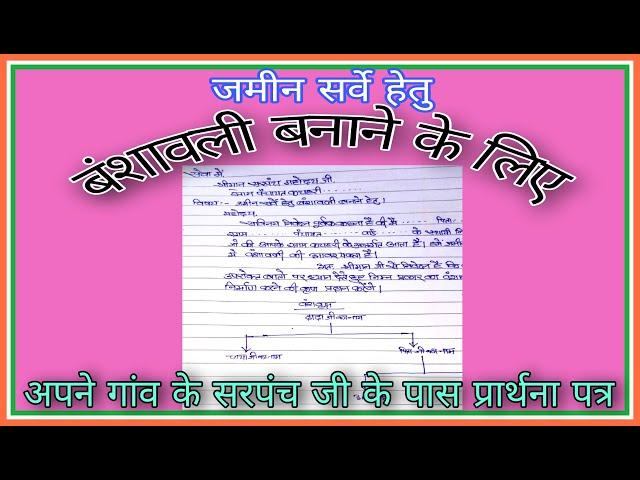 जमीन सर्वे हेतु
बंशावली बनाने के लिए
सेवा में
श्रीमान सरपंच महोदय जी.
ग्राम पंचायत कचहरी
विषय:- जमीन सर्वे हेतु वंशावली बनाने हेतु।
महोदय,
सविनय निवेदन पूर्वक कहना है की मैं ...... पिता
ग्राम ...... पंचायत ...... वार्ड ...... के स्थायी
जो की आपके ग्राम कचहरी के अन्तर्गत आता है।
मे वंशावली की आवश्यकता है।
अतः श्रीमान जी से निवेदन है कि
उपरोक्त बातों पर ध्यान देते हुए निम्न प्रकार का वंशा
निर्माण करने की कृपा प्रदान करेंगे।
वंशवृक्ष
दादा जी का नाम
चाचा जी का नाम पिता जी का नाम
अपने गांव के सरपंच जी के पास प्रार्थना पत्र